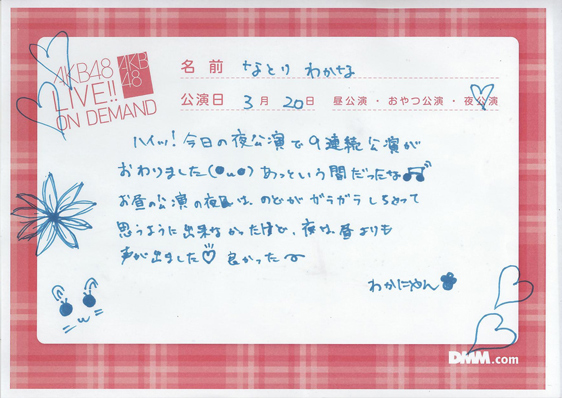 AKB48
LIVE!!
ON DEMAND
AKB
48
名前 なとり わかな
公演日 3月 20日 昼公演・おやつ公演・夜公演
ハイッ! 今日の夜公演で9連続公演が
おわりました(●u●) あっという間だったな♫
お昼の公演の は、のどが ガラガラ しちゃって
思うように出来なかったけど、夜は、昼よりも
声が出ました♡ 良かった〜
わかにゃん
DMM.com